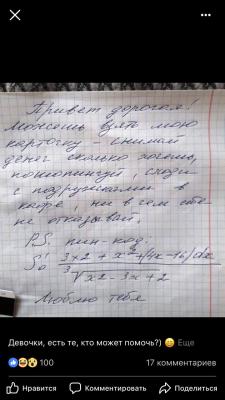 Привет дорогая!
Можешь взять мою
карточку - снимай
денег сколько хочешь,
пошопингуй, сходи
с подружками в
кафе, ни в чем себе
не отказывай.
P.S. пин-код:
Люблю тебя
Девочки, есть те, кто может помочь?) 😄 Еще
100
17 комментариев
Нравится
Комментировать
Поделиться